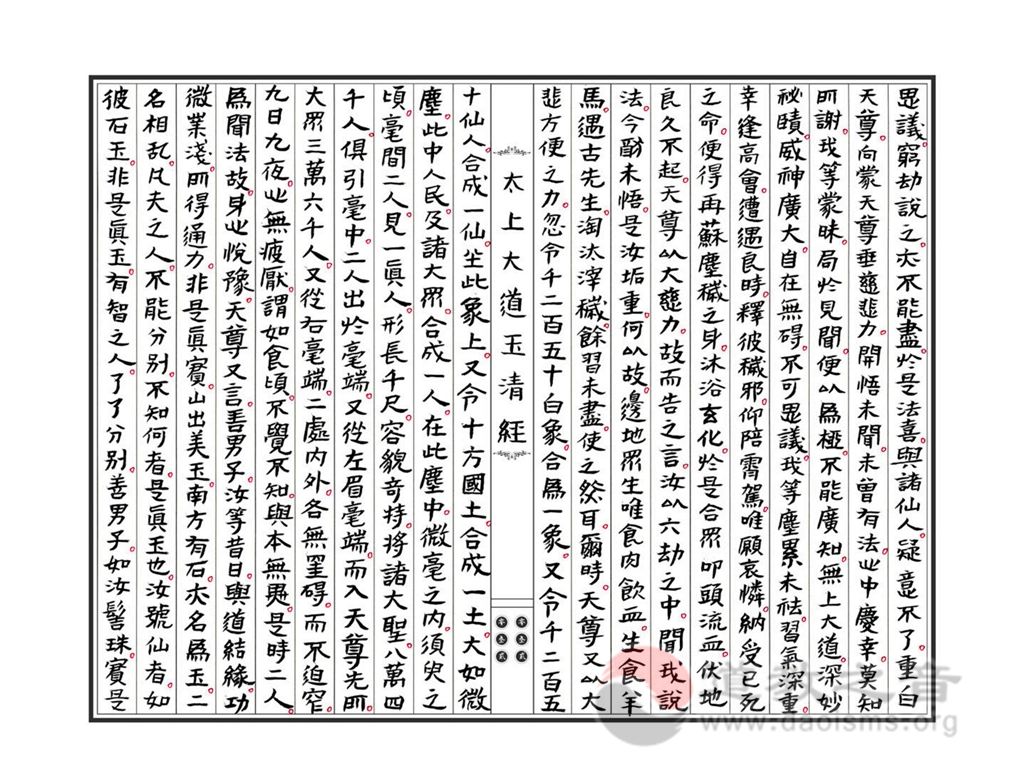 思議窮劫說之亦不能盡於是法喜與諸仙人疑意不了重白
天尊向蒙天尊垂慈悲力開悟未聞未曾有法心中慶幸莫知
所謝我等蒙昧局於見聞便以為極不能廣知無上大道深妙
祕賾威神廣大自在無碍不可思議我等塵累未祛習氣深重
幸逢高會遭遇良時釋彼穢邪仰陪霄駕唯願哀憐納受已死
之命便得再蘇塵穢之身沐浴玄化於是合眾叩頭流血伏地
良久不起天尊以大慈力故而告之言汝以六劫之中聞我說
法今酬未悟是汝垢重何以故邊地眾生唯食肉飲血生食羊
馬遇古先生淘汰滓穢餘習未盡使之然耳爾時天尊又以大
悲方便之力忽令千二百五十白象合為一象又令千二百五
太上大道玉清經
零零
叁叁
貳貳
十仙人合成一仙坐此象上又令十方國土合成一土大如微
塵此中人民及諸大眾合成一人在此塵中微毫之內須臾之
頃毫間二人見一真人形長千尺容貌奇特將諸大聖八萬四
千人俱引毫中二人出於毫端又從左眉毫端而入天尊先所
大眾三萬六千人又從右毫端二處內外各無罣碍而不迫窄
九日九夜心無疲厭謂如食頃不覺不知與本無異是時二人
為聞法故身心悅豫天尊又言善男子汝等昔日與道結緣功
微業淺所得通力非是真寶山出美玉南方有石亦名為玉二
名相亂凡夫之人不能分別不知何者是真玉也汝號仙者如
彼石玉非是真玉有智之人了了分別善男子如汝髻珠寶是
道教之音
www.daoisms.org